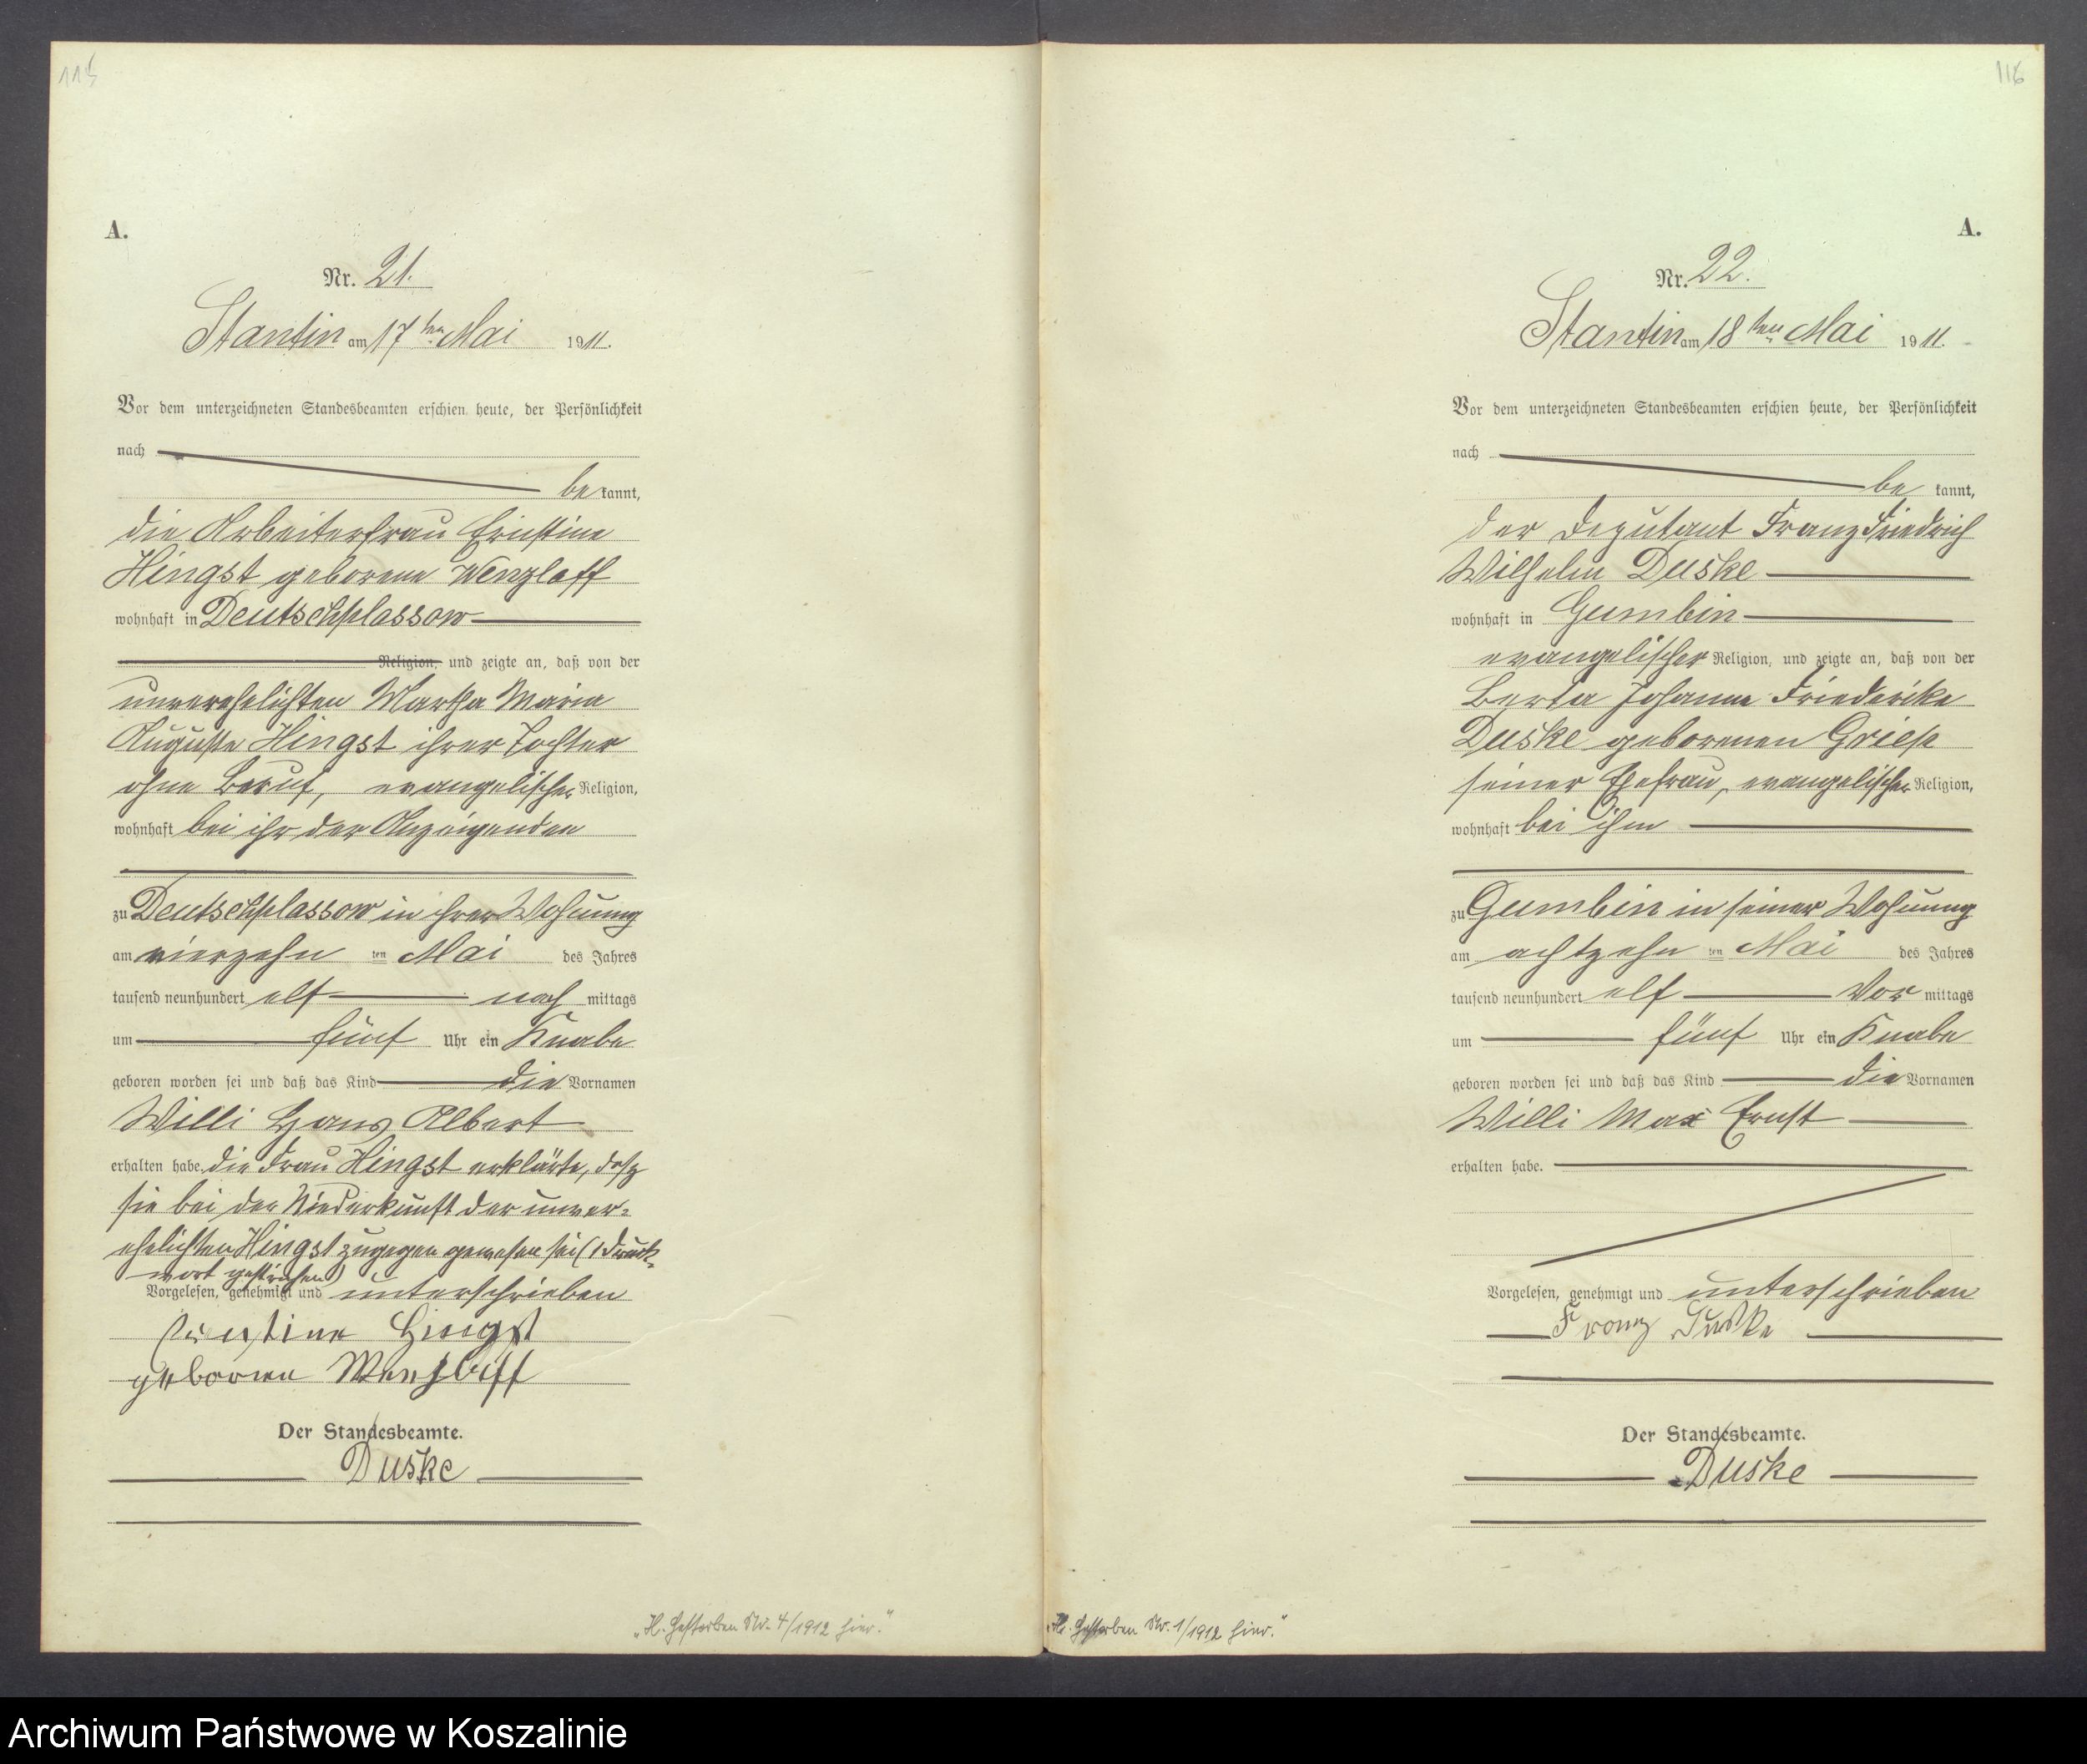 115
A.
Nr. 21.
Stantin am 17ten Mai 1911.
Vor dem unterzeichneten Standesbeamten erschien heute, der Persönlichkeit
nach
bekannt,
die Arbeiterfrau Ernstine
Hingst geborene Wenzlaff
wohnhaft in Deutschplassow
Religion, und zeigte an, daß von der
unverehelichten Martha Marie
Auguste Hingst ihrer Tochter
ohne Beruf, evangelischer Religion,
wohnhaft bei ihr der Anzeigenden
zu Deutschplassow in ihrer Wohnung
am vierzehn ten Mai des Jahres
tausend neunhundert elf nach mittags
um fünf Uhr ein Knabe
geboren worden sei und daß das Kind die Vornamen
Willi Hans Albert
erhalten habe. die Frau Hingst erklärte, daß
sie bei der Niederkunft der unver-
ehelichten Hingst zugegen gewesen sei (1 Druck-
wort gestrichen)
Vorgelesen, genehmigt und unterschrieben
Ernstine Hingst
geborene Wenzlaff
Der Standesbeamte.
Duske
„H. Gestorben Nr. 4/1912 hier."
116
A.
Nr. 22.
Stantin am 18ten Mai 1911.
Vor dem unterzeichneten Standesbeamten erschien heute, der Persönlichkeit
nach
bekannt,
der Deputant Franz Friedrich
Wilhelm Duske
wohnhaft in Gumbin
evangelischer Religion, und zeigte an, daß von der
Berta Johanne Friederike
Duske geborenen Griese
seiner Ehefrau, evangelischer Religion,
wohnhaft bei ihm
zu Gumbin in seiner Wohnung
am achtzehn ten Mai des Jahres
tausend neunhundert elf Vor mittags
um fünf Uhr ein Knabe
geboren worden sei und daß das Kind die Vornamen
Willi Max Ernst
erhalten habe.
Vorgelesen, genehmigt und unterschrieben
Franz Duske
Der Standesbeamte.
Duske
„H. Gestorben Nr. 1/1912 hier."
Archiwum Państwowe w Koszalinie